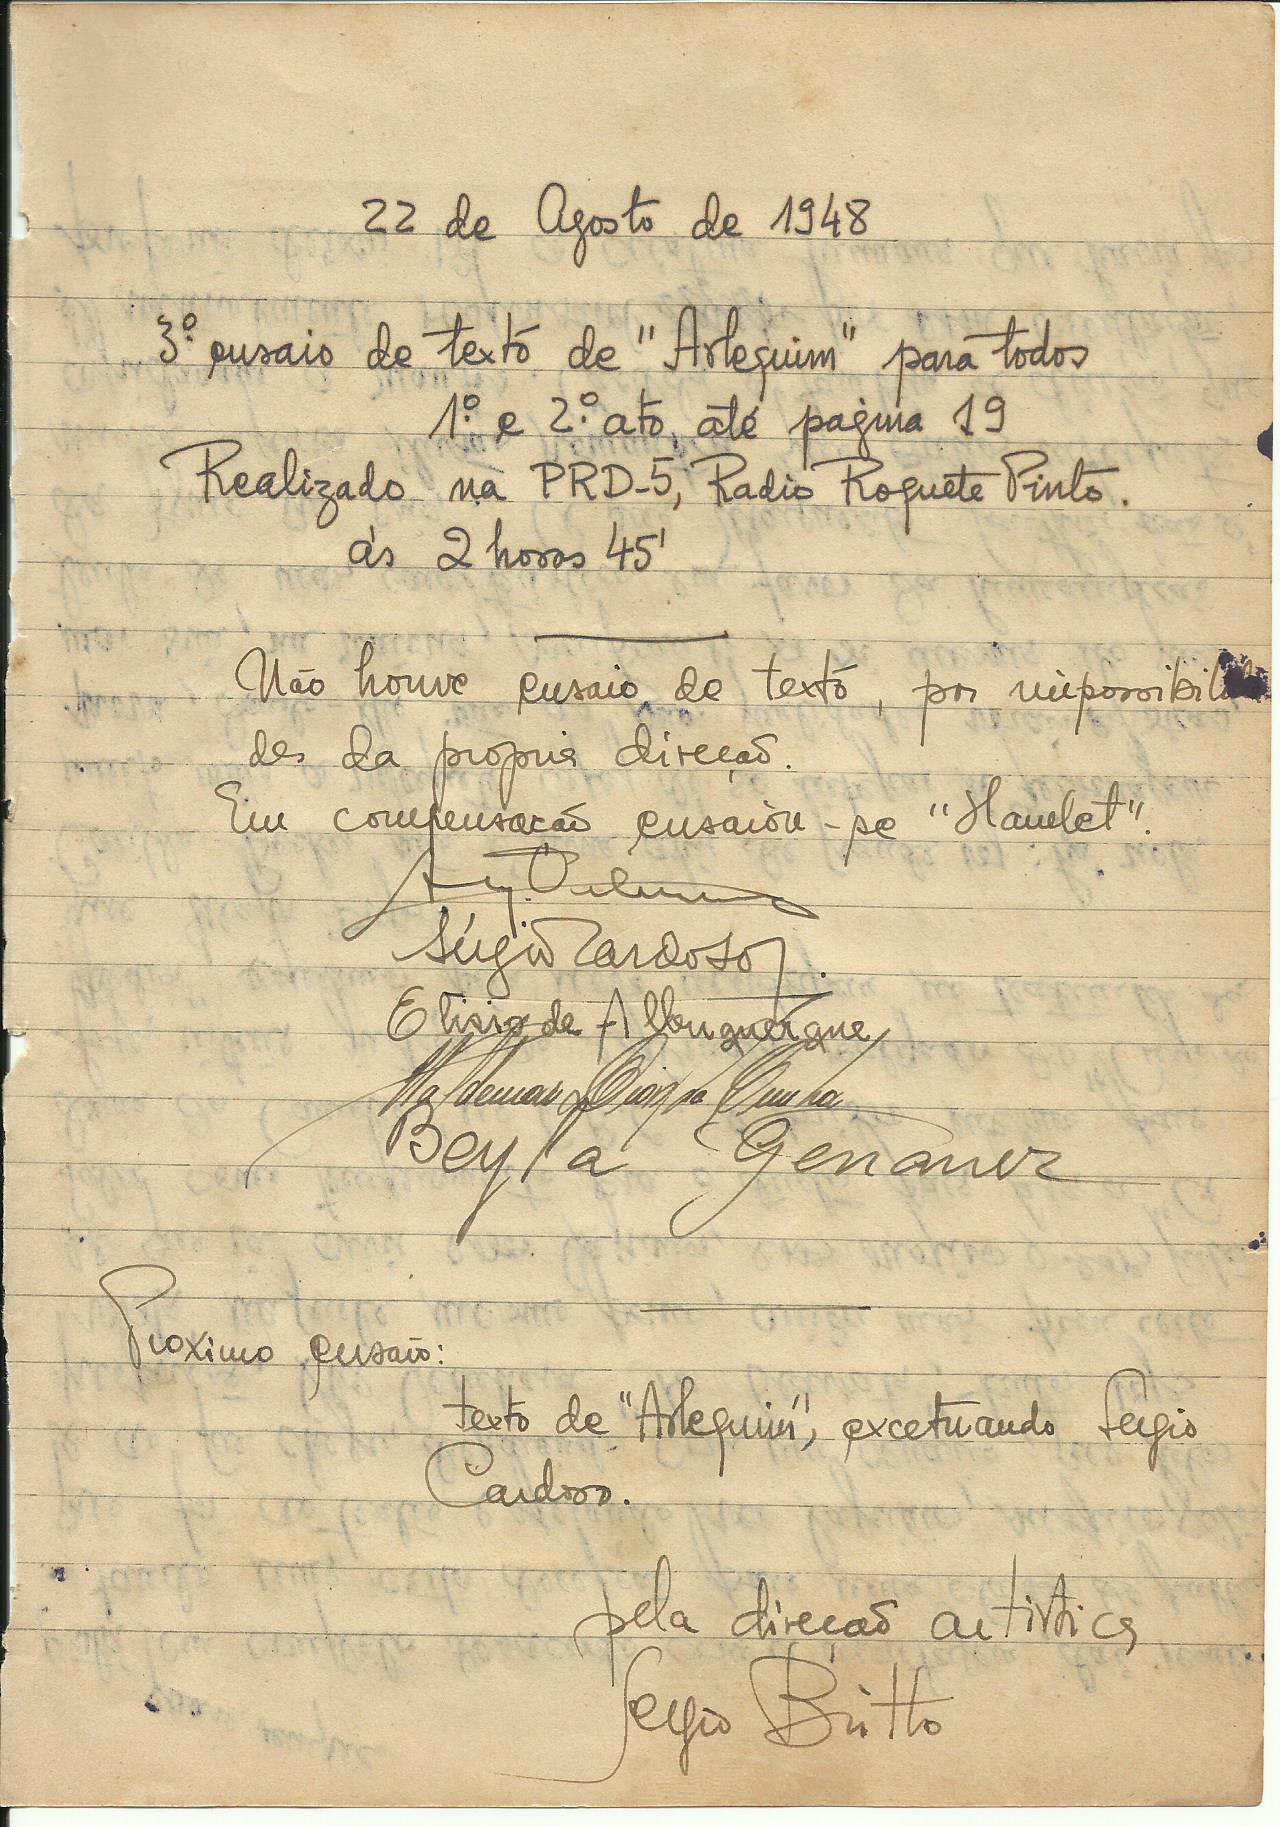 22 de Agosto de 1948
3º ensaio de texto de "Arlequim" para todos
1º e 2º ato, até página 19
Realizado na PRD-5, Radio Roquete Pinto.
ás 2 horas 45'
Não houve ensaio de texto, por impossibilida
des da propria direcção.
Em compensação ensaiou-se "Hamlet".
Sérgio Cardoso.
Elisio de Albuquerque
Beyla Genauer
Proximo ensaio:
texto de "Arlequim", excetuando Sergio
Cardoso.
pela direcção artistica
Sergio Britto